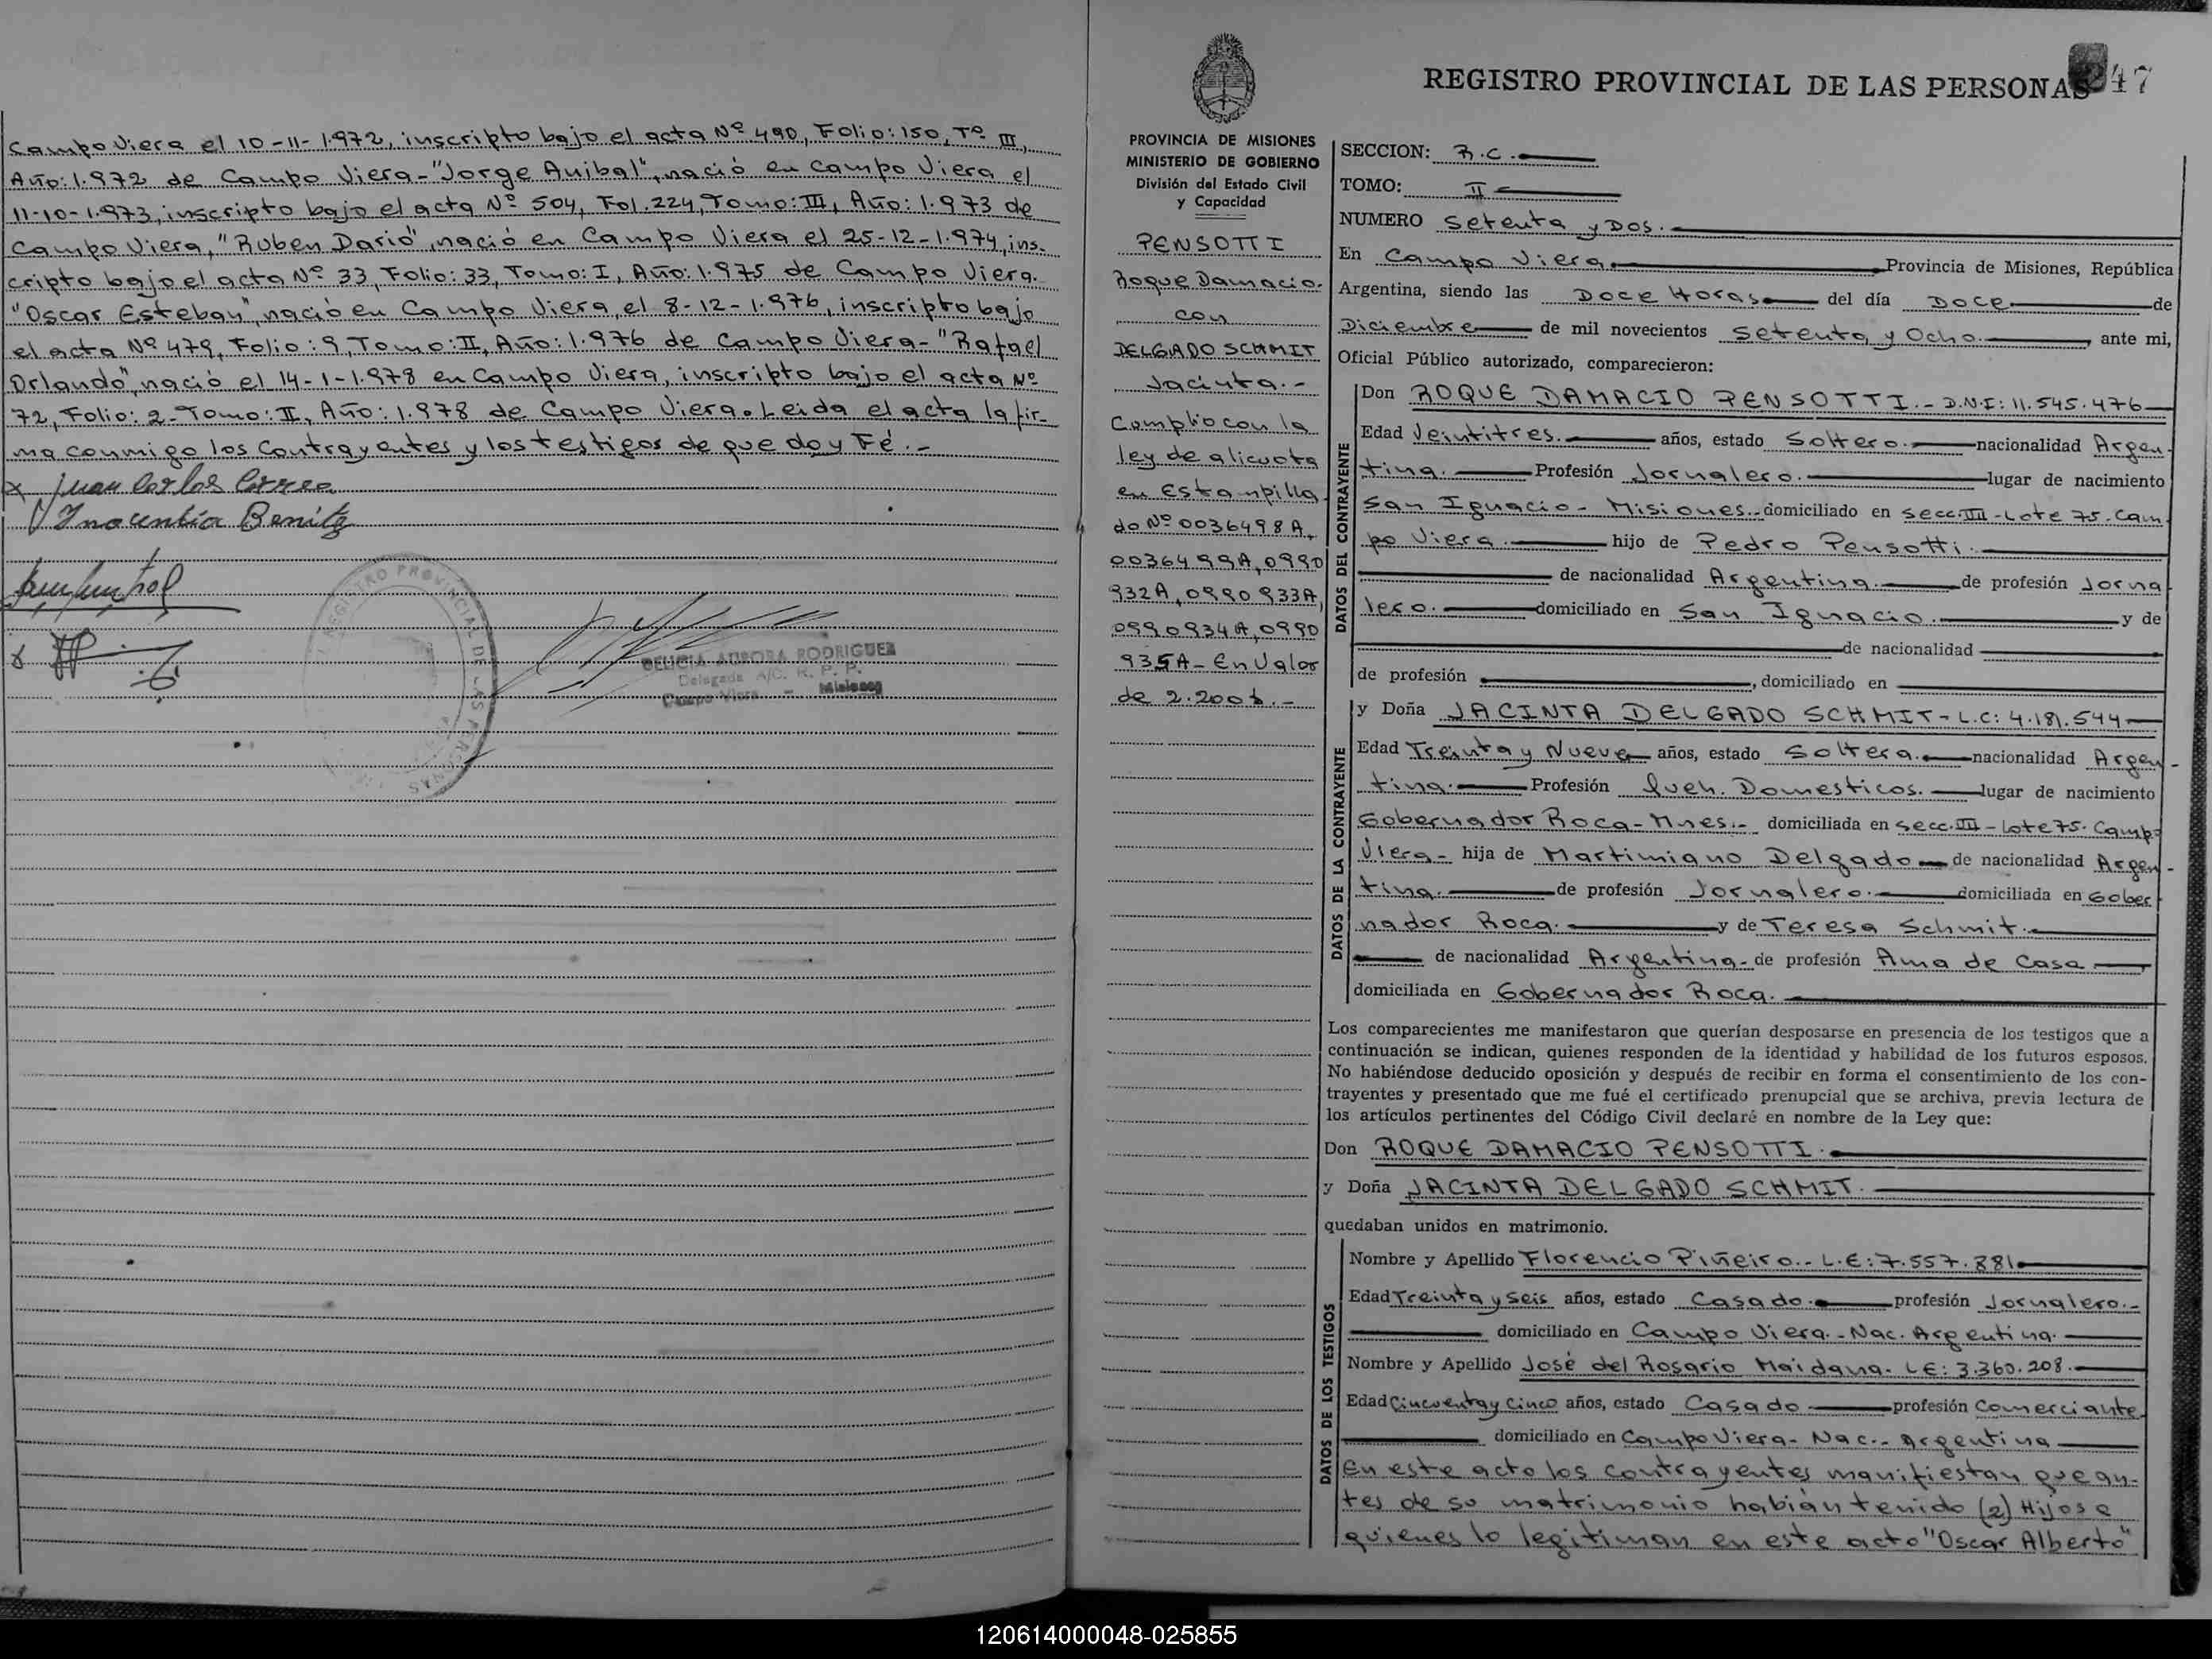 Campo Viera el 10-11-1.972, inscripto bajo el acta Nº 490, Folio: 150, Tº III,
Año: 1.972 de Campo Viera - "Jorge Anibal", nació en Campo Viera el
11-10-1.973, inscripto bajo el acta Nº 504, Fol. 224, Tomo: III, Año: 1.973 de
Campo Viera, "Ruben Dario", nació en Campo Viera el 25-12-1.974, ins-
cripto bajo el acta Nº 33, Folio: 33, Tomo: I, Año: 1.975 de Campo Viera.
"Oscar Esteban", nació en Campo Viera el 8-12-1.976, inscripto bajo
el acta Nº 479, Folio: 9, Tomo: II, Año: 1.976 de Campo Viera - "Rafael
Orlando", nació el 14-1-1.978 en Campo Viera, inscripto bajo el acta Nº
72, Folio: 2 - Tomo: II, Año: 1.978 de Campo Viera. Leida el acta la fir-
ma conmigo los contrayentes y los testigos de que doy Fé.-
x Juan Carlos Correa
Inocentia Benitz
REGISTRO PROVINCIAL DE LAS PERSONAS
DELICIA AURORA RODRIGUEZ
Delegada A/C. R. P. P.
Campo Viera - Misiones
REGISTRO PROVINCIAL DE LAS PERSONAS 247
PROVINCIA DE MISIONES
MINISTERIO DE GOBIERNO
División del Estado Civil
y Capacidad
PENSOTTI
Roque Damacio.
con
DELGADO SCHMIT
Jacinta.-
Complio con la
ley de alicuota
en Estampilla
do Nº 0036498A,
0036499A, 0990
932A, 0990933A,
0990934A, 0990
935A - En Valor
de 2.200$.-
SECCION: R.C.
TOMO: II
NUMERO Setenta y Dos.
En Campo Viera. Provincia de Misiones, República
Argentina, siendo las Doce Horas del día Doce de
Diciembre de mil novecientos Setenta y Ocho. ante mi,
Oficial Público autorizado, comparecieron:
DATOS DEL CONTRAYENTE
Don ROQUE DAMACIO PENSOTTI.- D.N.I: 11.545.476
Edad Veintitres. años, estado Soltero. nacionalidad Argen-
tina. Profesión Jornalero. lugar de nacimiento
San Ignacio - Misiones.- domiciliado en Secc. III - Lote 75. Cam-
po Viera. hijo de Pedro Pensotti.
de nacionalidad Argentina. de profesión Jorna
lero. domiciliado en San Ignacio. y de
de nacionalidad
de profesión , domiciliado en
DATOS DE LA CONTRAYENTE
y Doña JACINTA DELGADO SCHMIT - L.C: 4.181.544
Edad Treinta y Nueve años, estado Soltera. nacionalidad Argen-
tina. Profesión Queh. Domesticos. lugar de nacimiento
Gobernador Roca - Mnes.- domiciliada en Secc. III - Lote 75. Campo
Viera - hija de Martimiano Delgado de nacionalidad Argen-
tina. de profesión Jornalero. domiciliada en Gober
nador Roca. y de Teresa Schmit.
de nacionalidad Argentina - de profesión Ama de Casa
domiciliada en Gobernador Roca.
Los comparecientes me manifestaron que querían desposarse en presencia de los testigos que a
continuación se indican, quienes responden de la identidad y habilidad de los futuros esposos.
No habiéndose deducido oposición y después de recibir en forma el consentimiento de los con-
trayentes y presentado que me fué el certificado prenupcial que se archiva, previa lectura de
los artículos pertinentes del Código Civil declaré en nombre de la Ley que:
Don ROQUE DAMACIO PENSOTTI.
y Doña JACINTA DELGADO SCHMIT.
quedaban unidos en matrimonio.
DATOS DE LOS TESTIGOS
Nombre y Apellido Florencio Piñeiro.- L.E: 7.557.881
Edad Treinta y Seis años, estado Casado. profesión Jornalero.-
domiciliado en Campo Viera.- Nac. Argentina.
Nombre y Apellido José del Rosario Maidana. LE: 3.360.208.
Edad Cincuenta y Cinco años, estado Casado profesión Comerciante
domiciliado en Campo Viera - Nac.- Argentina
En este acto los contrayentes manifiestan que an-
tes de su matrimonio habian tenido (2) Hijos a
quienes lo legitiman en este acto "Oscar Alberto"
120614000048-025855